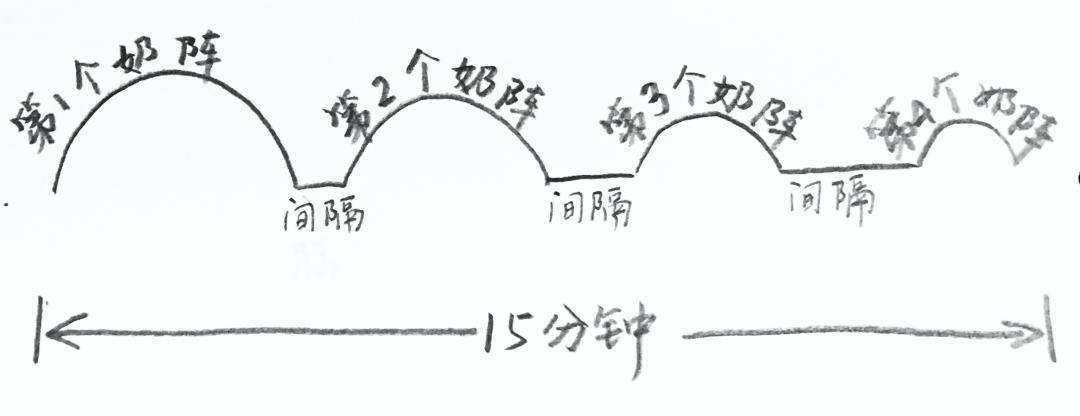 第1个奶阵
第2个奶阵
第3个奶阵
第4个奶阵
间隔
间隔
间隔
15分钟